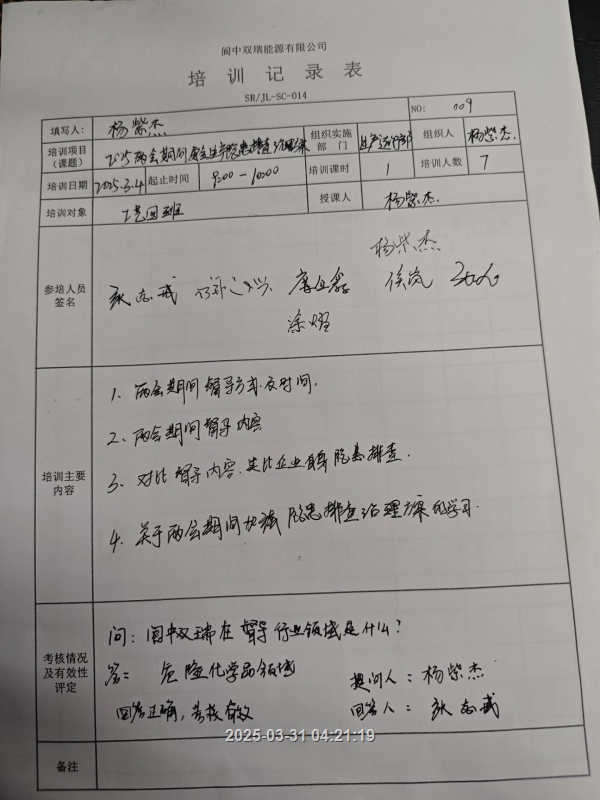 阆中双瑞能源有限公司
培训记录表
SR/JL-SC-014
填写人: 杨紫杰 NO: 009
培训项目(课题) 2025两会期间安全生产隐患排查治理方案 组织实施部门 生产运行部 组织人 杨紫杰
培训日期 2025.3.4 起止时间 9:00-10:00 培训课时 1 培训人数 7
培训对象 工艺四班 授课人 杨紫杰
杨紫杰
参培人员签名 侯岚
培训主要内容
1、两会期间督导方式及时间.
2、两会期间督导内容
3、对比督导内容.类比企业自身隐患排查.
4、关于两会期间加强隐患排查治理方案的学习.
考核情况及有效性评定
问:阆中双瑞在督导行业领域是什么?
答: 危险化学品领域 提问人:杨紫杰
回答正确,考核有效 回答人:
2025-03-31 04:21:19
备注